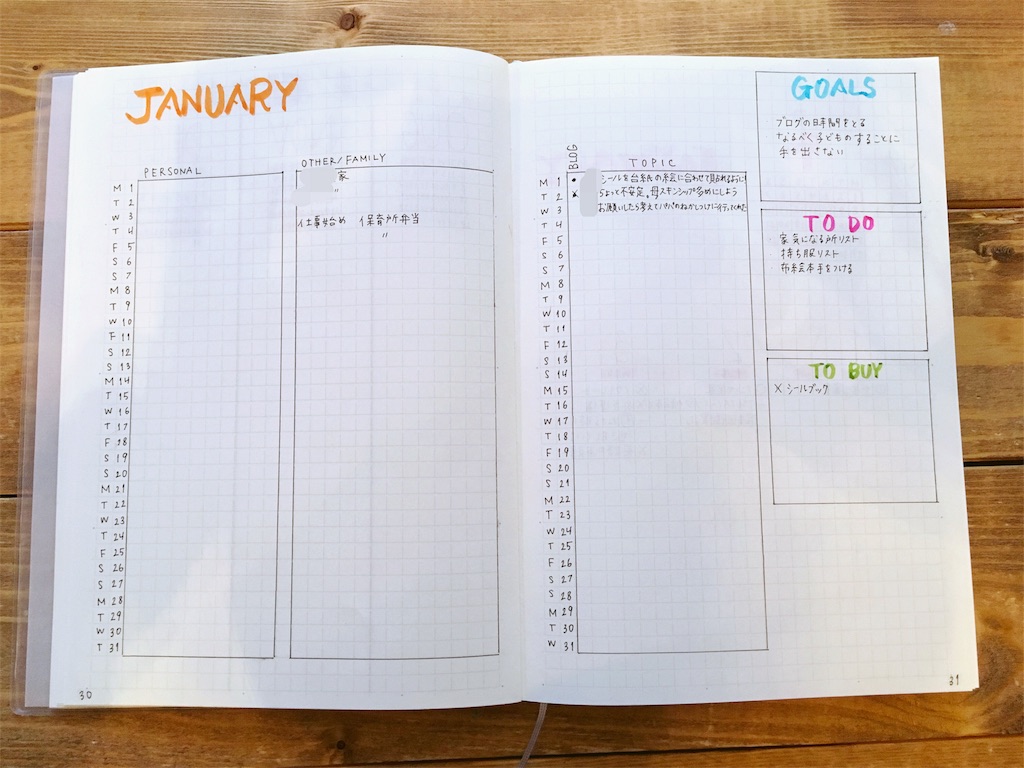 JANUARY
PERSONAL
OTHER/FAMILY
家
M 1
T 2 〃
W 3
T 4 仕事始め 保育所弁当
F 5 〃
S 6
S 7
M 8
T 9
W 10
F 11
S 12
S 13
M 14
T 15
W 16
T 17
F 18
S 19
S 20
M 21
T 22
W 23
T 24
F 25
S 26
S 27
M 28
T 29
W 30
T 31
30
BLOG
TOPIC
M 1 • シールを台紙の絵に合わせて貼れるように!
T 2 × 不安定。母スキンシップ多めにしよう
W 3 お願いしたら考えてパパの
T 4
F 5
S 6
S 7
M 8
T 9
W 10
T 11
F 12
S 13
S 14
M 15
T 16
W 17
T 18
F 19
S 20
S 21
M 22
T 23
W 24
T 25
F 26
S 27
S 28
M 29
T 30
W 31
GOALS
ブログの時間をとる
なるべく子どものすることに
手を出さない
TO DO
家気になる所リスト
持ち服リスト
布絵本手をつける
TO BUY
× シールブック
31